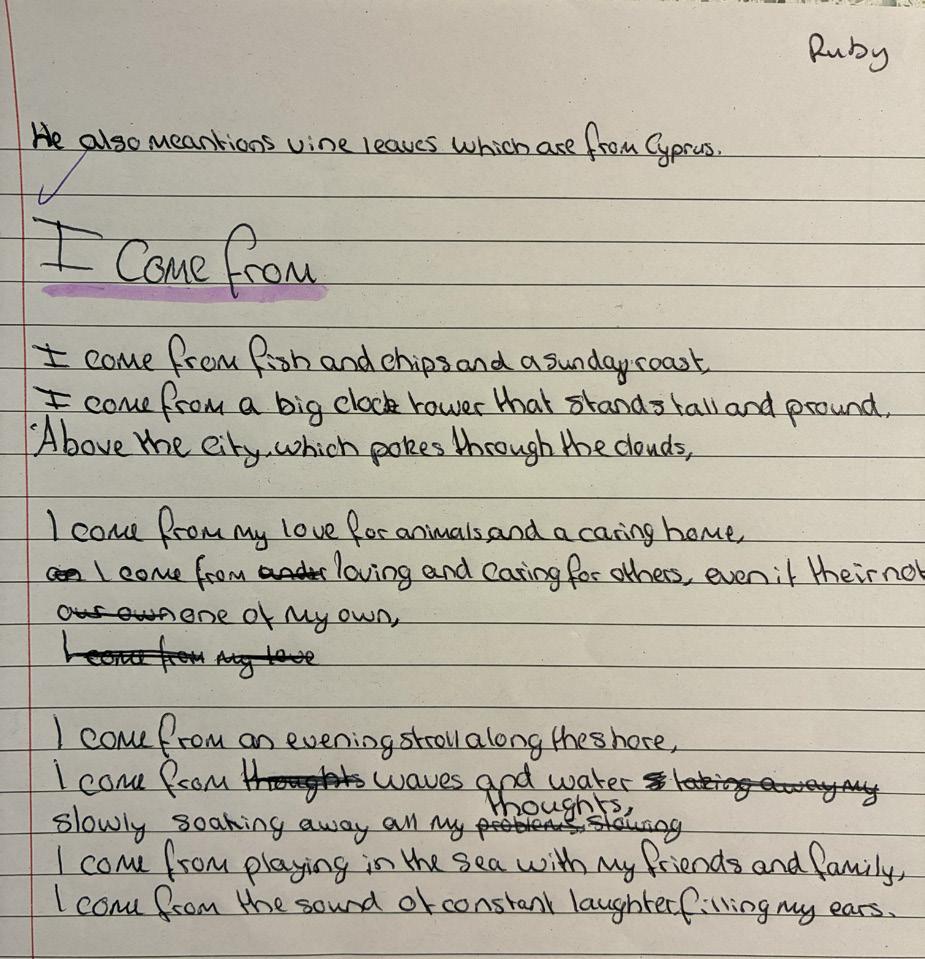 Ruby
He also meantions vine leaves which are from Cyprus.
I Come from
I come from fish and chips and a sunday roast,
I come from a big clock tower that stands tall and pround,
Above the city, which pokes through the clouds,
I come from my love for animals, and a caring home,
I come from under loving and caring for others, even if their not
our own one of my own,
I come from my love
I come from an evening stroll along the shore,
I come from thoughts waves and water taking away my
thoughts,
slowly soaking away all my problems, slowing
I come from playing in the sea with my friends and family,
I come from the sound of constant laughter filling my ears.